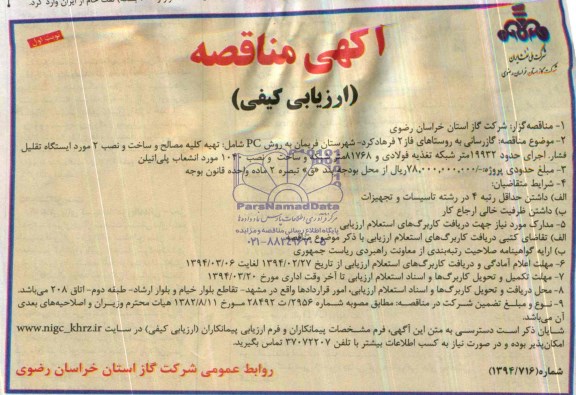 نفت خام از ایران وارد کرد.
نوبت اول
شرکت ملی گاز ایران
شرکت گاز استان خراسان رضوی
آگهی مناقصه
(ارزیابی کیفی)
۱- مناقصه‌گزار: شرکت گاز استان خراسان رضوی
۲- موضوع مناقصه: گازرسانی به روستاهای فاز ۲ فرهادگرد- شهرستان فریمان به روش PC شامل: تهیه کلیه مصالح و ساخت و نصب ۲ مورد ایستگاه تقلیل
فشار، اجرای حدود ۱۹۹۳۲متر شبکه تغذیه فولادی و ۸۱۷۶۸متر شبکه و ساخت و نصب ۱۰۴۰ مورد انشعاب پلی‌اتیلن
۳- مبلغ حدودی پروژه: -/۷۸,۰۰۰,۰۰۰,۰۰۰ریال از محل بودجه بند «ق» تبصره ۲ ماده واحده قانون بوجه
۴- شرایط متقاضیان:
الف) داشتن حداقل رتبه ۴ در رشته تاسیسات و تجهیزات
ب) داشتن ظرفیت خالی ارجاع کار
۵- مدارک مورد نیاز جهت دریافت کاربرگ‌های استعلام ارزیابی
الف) تقاضای کتبی دریافت کاربرگ‌های استعلام ارزیابی با ذکر موضوع مناقصه
ب) ارایه گواهینامه صلاحیت رتبه‌بندی از معاونت راهبردی ریاست جمهوری
۶- مهلت اعلام آمادگی و دریافت کاربرگ‌های استعلام ارزیابی از تاریخ ۱۳۹۴/۰۲/۲۷ لغایت ۱۳۹۴/۰۳/۰۶
۷- مهلت تکمیل و تحویل کاربرگ‌ها و اسناد استعلام ارزیابی تا آخر وقت اداری مورخ ۱۳۹۴/۰۳/۲۰
۸- محل دریافت و تحویل کاربرگ‌ها و اسناد استعلام ارزیابی، امور قراردادها واقع در مشهد- تقاطع بلوار خیام و بلوار ارشاد- طبقه دوم- اتاق ۲۰۸ می‌باشد.
۹- نوع و مبلغ تضمین شرکت در مناقصه: مطابق مصوبه شماره ۲۹۵۶/ت ۲۸۴۹۲ مورخ ۱۳۸۲/۸/۱۱ هیات محترم وزیران و اصلاحیه‌های بعدی
آن می‌باشد.
شایان ذکر است دسترسی به متن این آگهی، فرم مشخصات پیمانکاران و فرم ارزیابی پیمانکاران (ارزیابی کیفی) در سایت www.nigc_khrz.ir
امکان‌پذیر بوده و در صورت نیاز به کسب اطلاعات بیشتر با تلفن ۳۷۰۷۲۲۰۷ تماس بگیرید.
روابط عمومی شرکت گاز استان خراسان رضوی
شماره(۱۳۹۴/۷۱۶)
ParsNamadData
پایگاه اطلاع رسانی مناقصه و مزایده